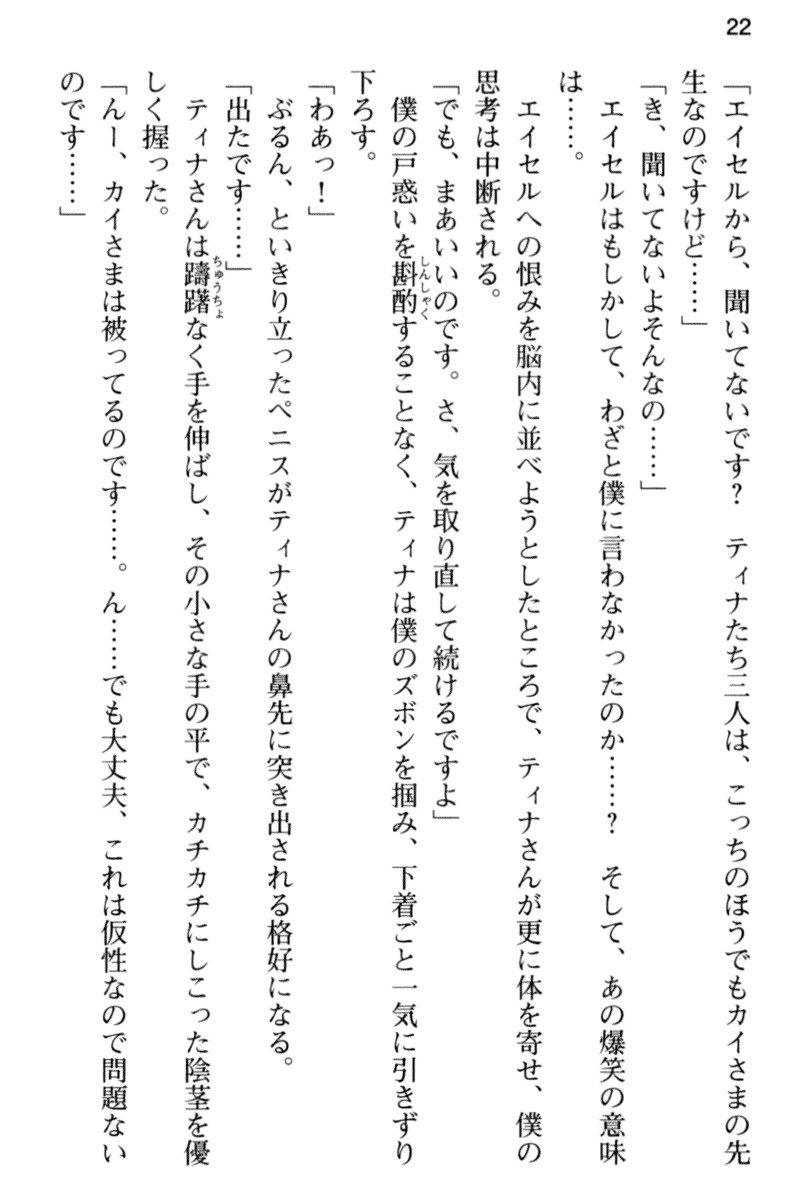 22
「エイセルから、聞いてないです？　ティナたち三人は、こっちのほうでもカイさまの先
生なのですけど……」
「き、聞いてないよそんなの……」
エイセルはもしかして、わざと僕に言わなかったのか……？　そして、あの爆笑の意味
は……。
エイセルへの恨みを脳内に並べようとしたところで、ティナさんが更に体を寄せ、僕の
思考は中断される。
「でも、まあいいのです。さ、気を取り直して続けるですよ」
僕の戸惑いを斟酌することなく、ティナは僕のズボンを掴み、下着ごと一気に引きずり
しんしゃく
下ろす。
「わあっ！」
ぶるん、といきり立ったペニスがティナさんの鼻先に突き出される格好になる。
「出たです……」
ティナさんは躊躇なく手を伸ばし、その小さな手の平で、カチカチにしこった陰茎を優
ちゅうちょ
しく握った。
「んー、カイさまは被ってるのです……。ん……でも大丈夫、これは仮性なので問題ない
のです……」